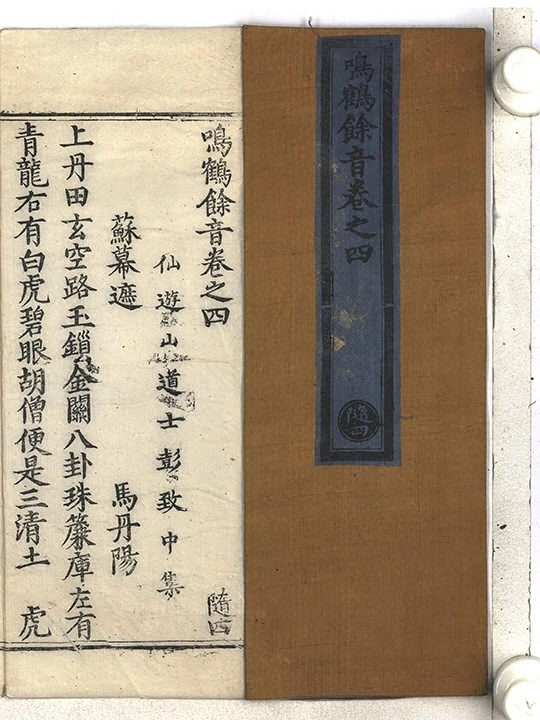 鳴鶴餘音卷之四
隨四
鳴鶴餘音卷之四
隨四
仙遊山道士彭致中集
蘇幕遮
馬丹陽
上丹田玄空路玉鎖金關八卦珠簾庫左有
青龍右有白虎碧眼胡僧便是三清土 虎